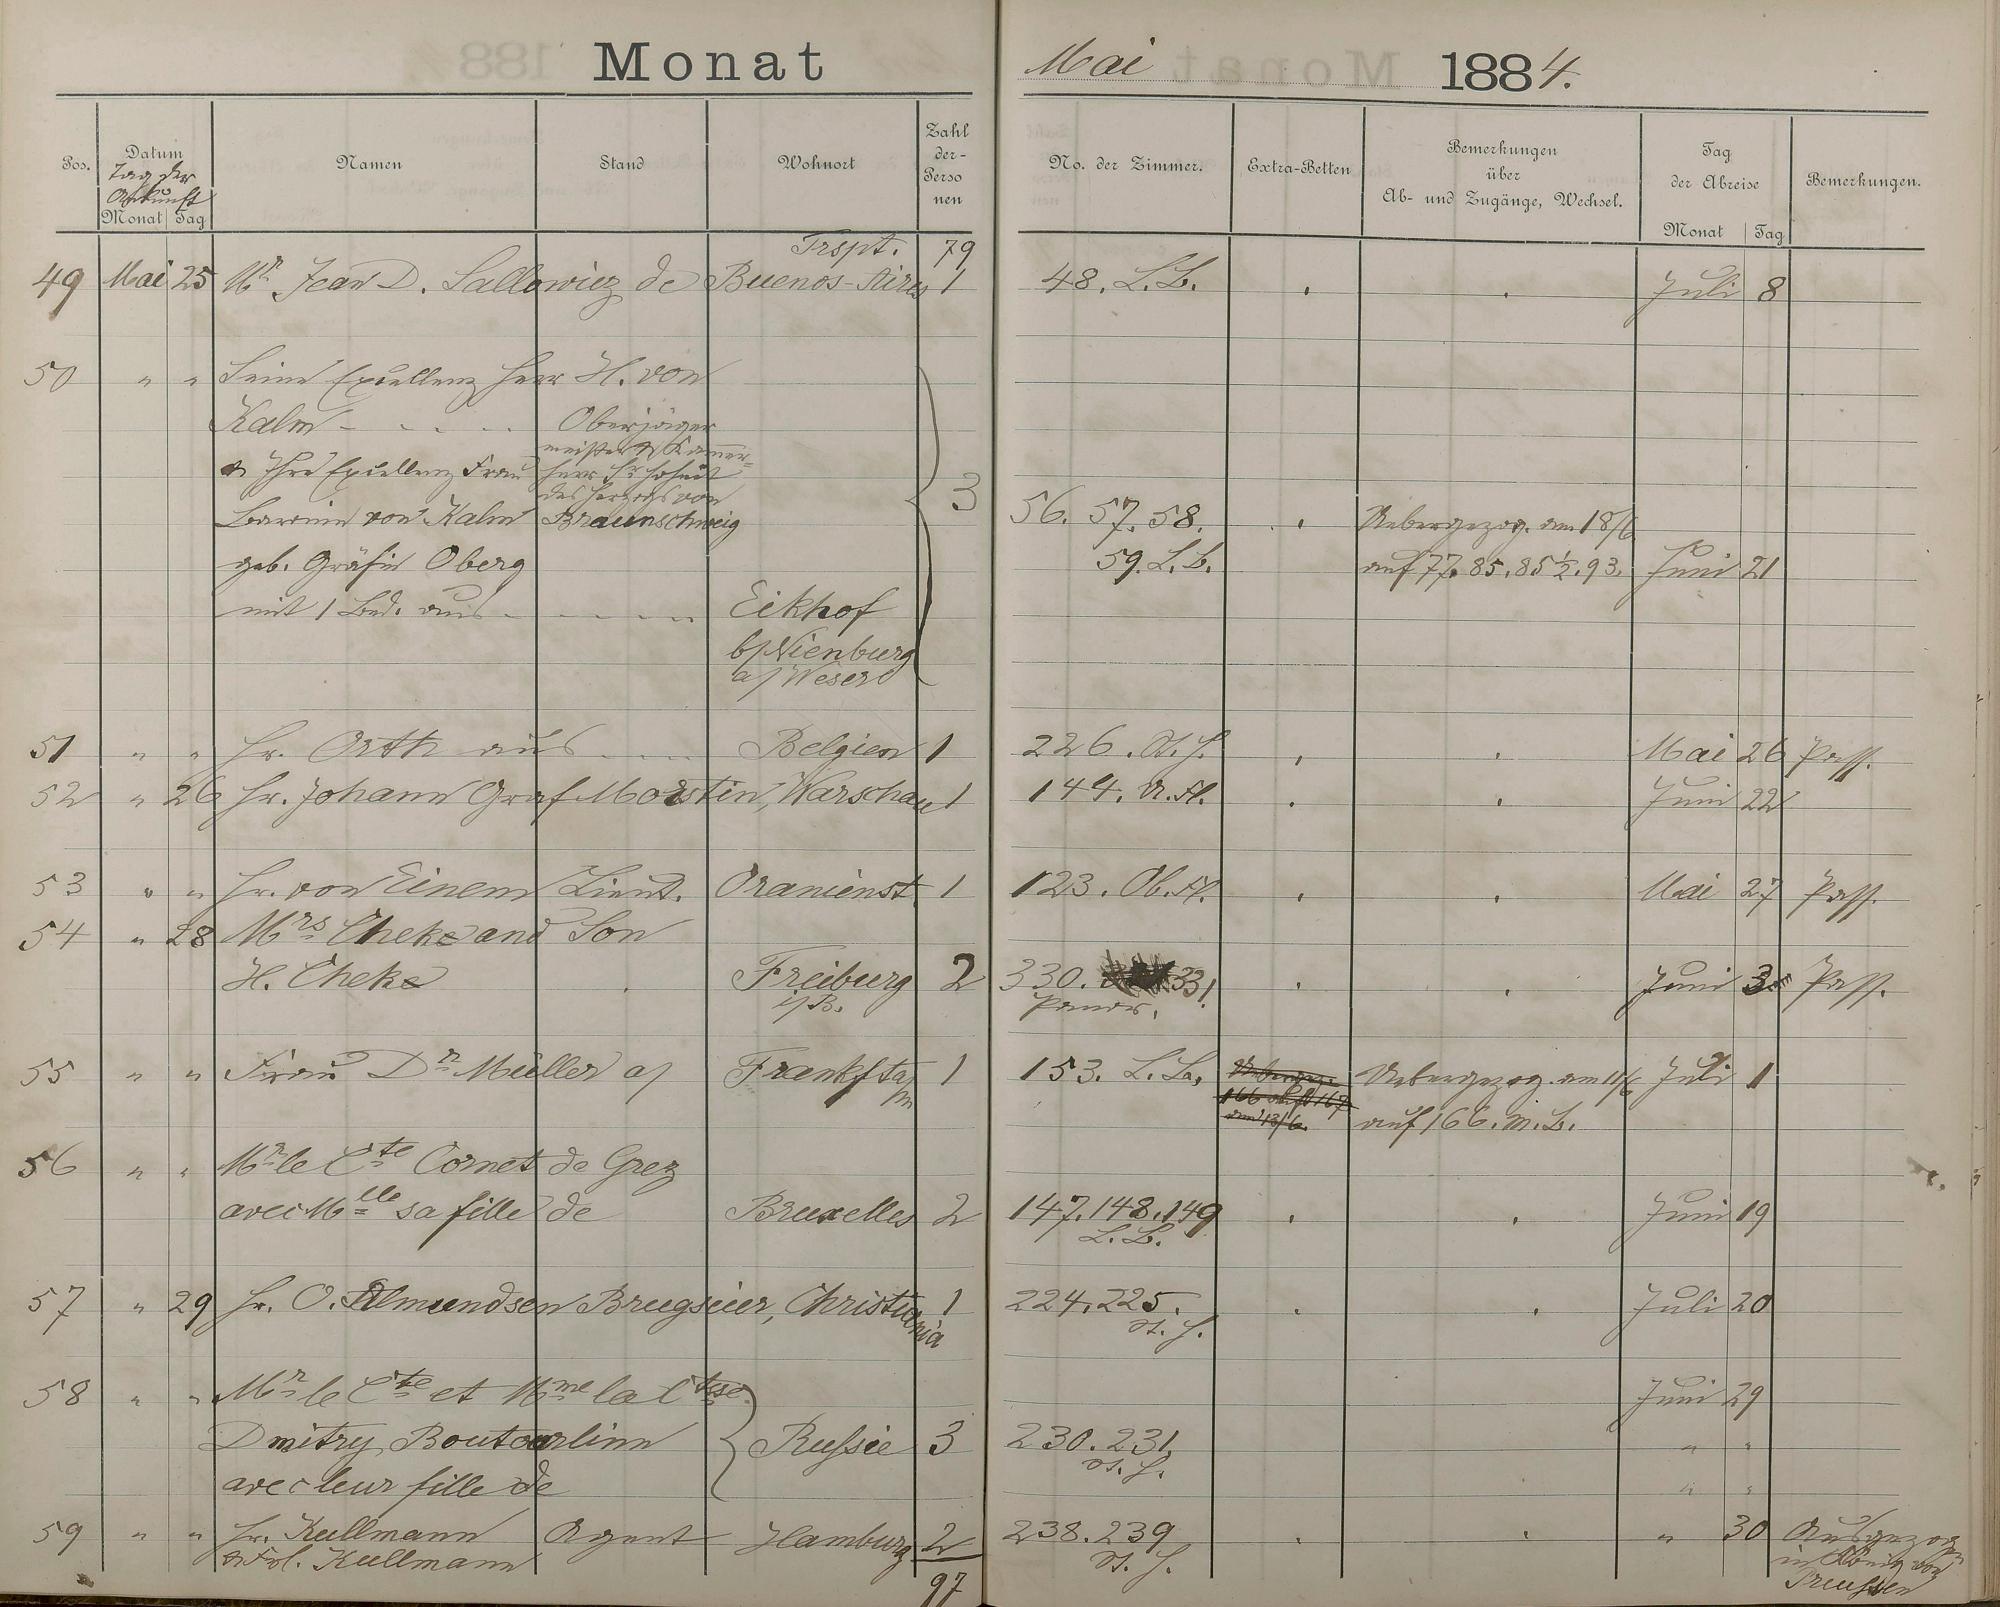 Monat
Mai 1884.
Pos.
Datum
Tag der
Ankunft
Monat Tag
Namen
Stand
Wohnort
Zahl
der-
Perso
nen
No. der Zimmer.
Extra-Betten
Bemerkungen
über
Ab- und Zugänge, Wechsel.
Tag
der Abreise
Monat Tag
Bemerkungen.
Trspt. 79
49 Mai 25 Mr. Jean D. Sallowicz de Buenos-Aires 1 48. L.B. Juli 8
50 " " Seine Excellenz Herr H. von
Kalm - - - - - Oberjäger
meister & Kammer-
& Ihre Excellenz Frau herr Sr Hoheit
des Herzogs von
Baronin von Kalm Braunschweig 3 56. 57. 58. Uebergezog. am 18/6
geb. Gräfin Oberg 59. L.B. auf 77. 85. 85½. 93. Juni 21
mit 1 Bed. aus - - - - Eikhof
b/Nienburg
a/Weser
51 " " Hr. Orth aus - - - Belgien 1 226. St. H. Mai 26 Pass.
52 " 26 Hr. Johann Graf Morstin, Warschau 1 144. U. Fl. Juni 22
53 " " Hr. von Einem Lieut. Oranienst. 1 123. Ob. Fl. Mai 27 Pass.
54 " 28 Mrs Cheke and Son
H. Cheke Freiburg 2 330. 331. Juni 3 Pass.
i/B. Panor.
55 " " Frau Dr Müller a/ Frankft a/ 1 153. L. La. Uebergez. Uebergezog. am 11/6 Juli 1
m 166 auf 167
am 13/6. auf 166. M. B.
56 " " Mr le Cte Cornet de Grez
avec Mlle sa fille de Bruxelles 2 147. 148. 149 Juni 19
L. B.
57 " 29 Hr. O. Almundsen Brugseier, Christiania 1 224. 225. Juli 20
St. H.
58 " " Mr le Cte et Mme la Ctsse Juni 29
Dmitry Boutourlinn Russie 3 230. 231. " "
St. H.
avec leur fille de " "
59 " " Hr. Kullmann Agent Hamburg 2 238. 239 " 30 Ausgezogen
& Frl. Kullmann St. H. in König von
Preussen
97